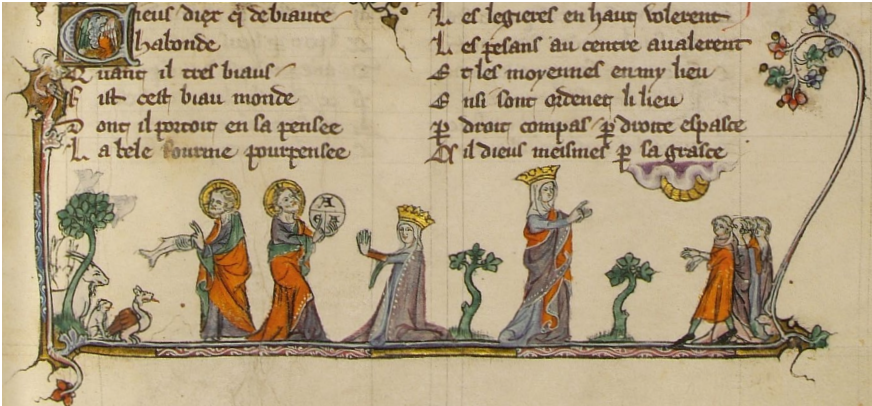 Cieus diex qͥ de biaute
habonde
Quant il tres biaus
Fist cest biau monde
Dont il portoit en sa pensee
La bele fourme pourpensee
Les legieres en haut volerent
Les ꝑesans au centre aualerent
Et les moyennes en my lieu
Ensi sont ordenet li lieu
ꝑ droit compas ꝑ droite espasce
Cil dieus meismes ꝑ sa grasce
A